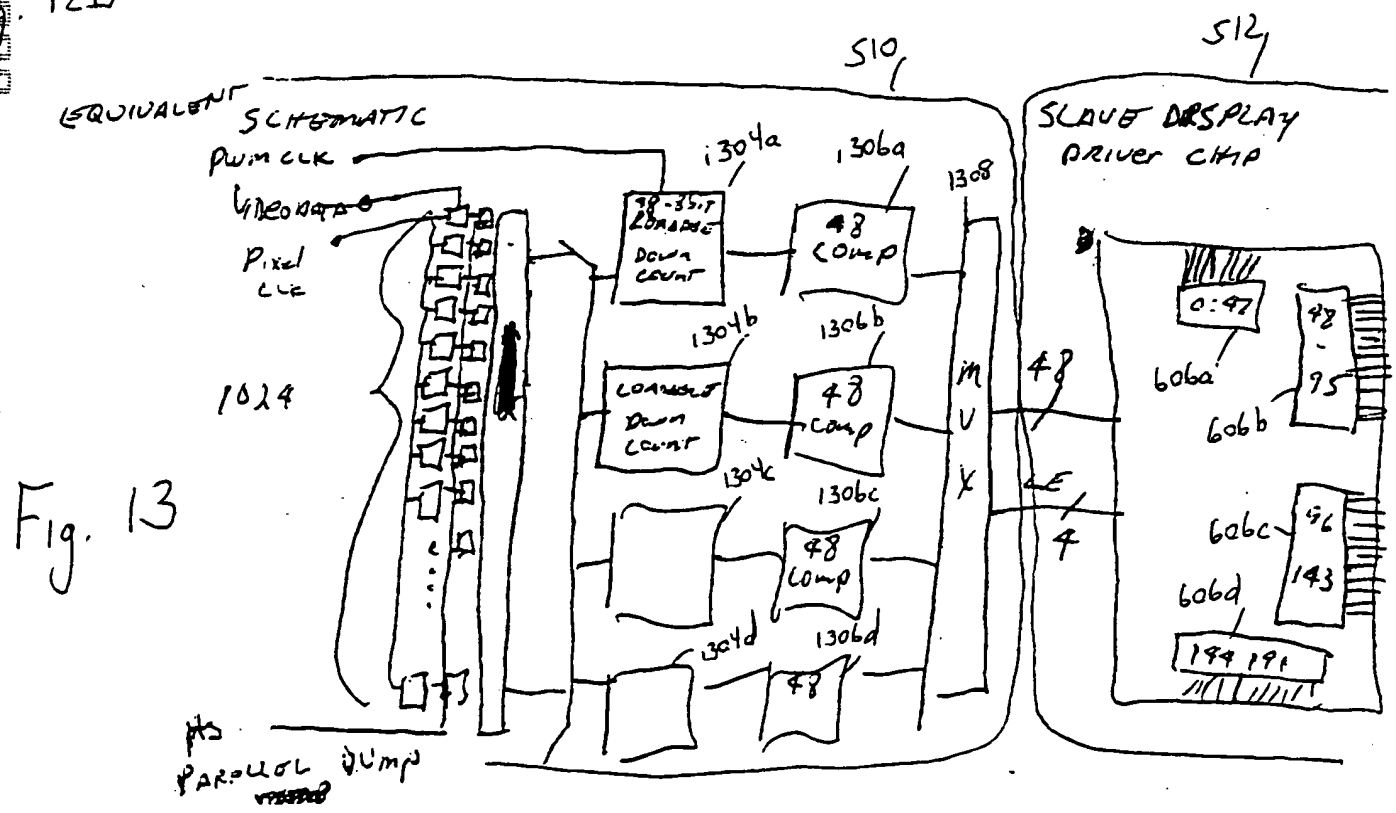 510
512
EQUIVALENT
SCHEMATIC
PWM CLK
VIDEO DATA
Pixel
CLK
1024
Fig. 13
HS
PARALLEL DUMP
1304a
LOADABLE
DOWN
COUNT
1306a
48
COMP
1308
1304b
LOADABLE
DOWN
COUNT
1306b
48
COMP
1304c
1306c
48
COMP
1304d
1306d
48
MUX
48
LE
4
SLAVE DISPLAY
DRIVER CHIP
0:47
606a
48
-
95
606b
606c
96
143
606d
144 191